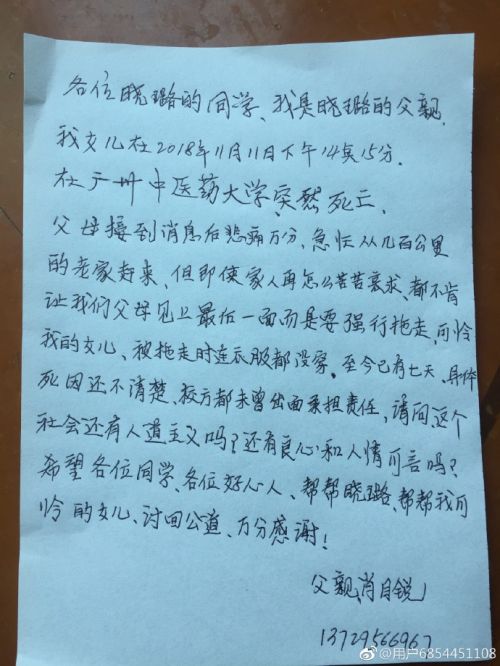 各位晓璐的同学、我是晓璐的父亲、
我女儿在2018年11月11日下午14点15分.
在广州中医药大学突然死亡.
父母接到消息后悲痛万分、急忙从几百公里
的老家赶来、但即使家人再怎么苦苦哀求、都不肯
让我们父母见上最后一面而是要强行拖走、可怜
我的女儿、被拖走时连衣服都没穿. 至今已有七天、具体
死因还不清楚、校方都未曾出面承担责任、请问、这个
社会还有人道主义吗?还有良心和人情可言吗?
希望各位同学、各位好心人、帮帮晓璐、帮帮我可
怜的女儿、讨回公道、万分感谢!
父亲、肖目锐
13729566967
@用户6854451108